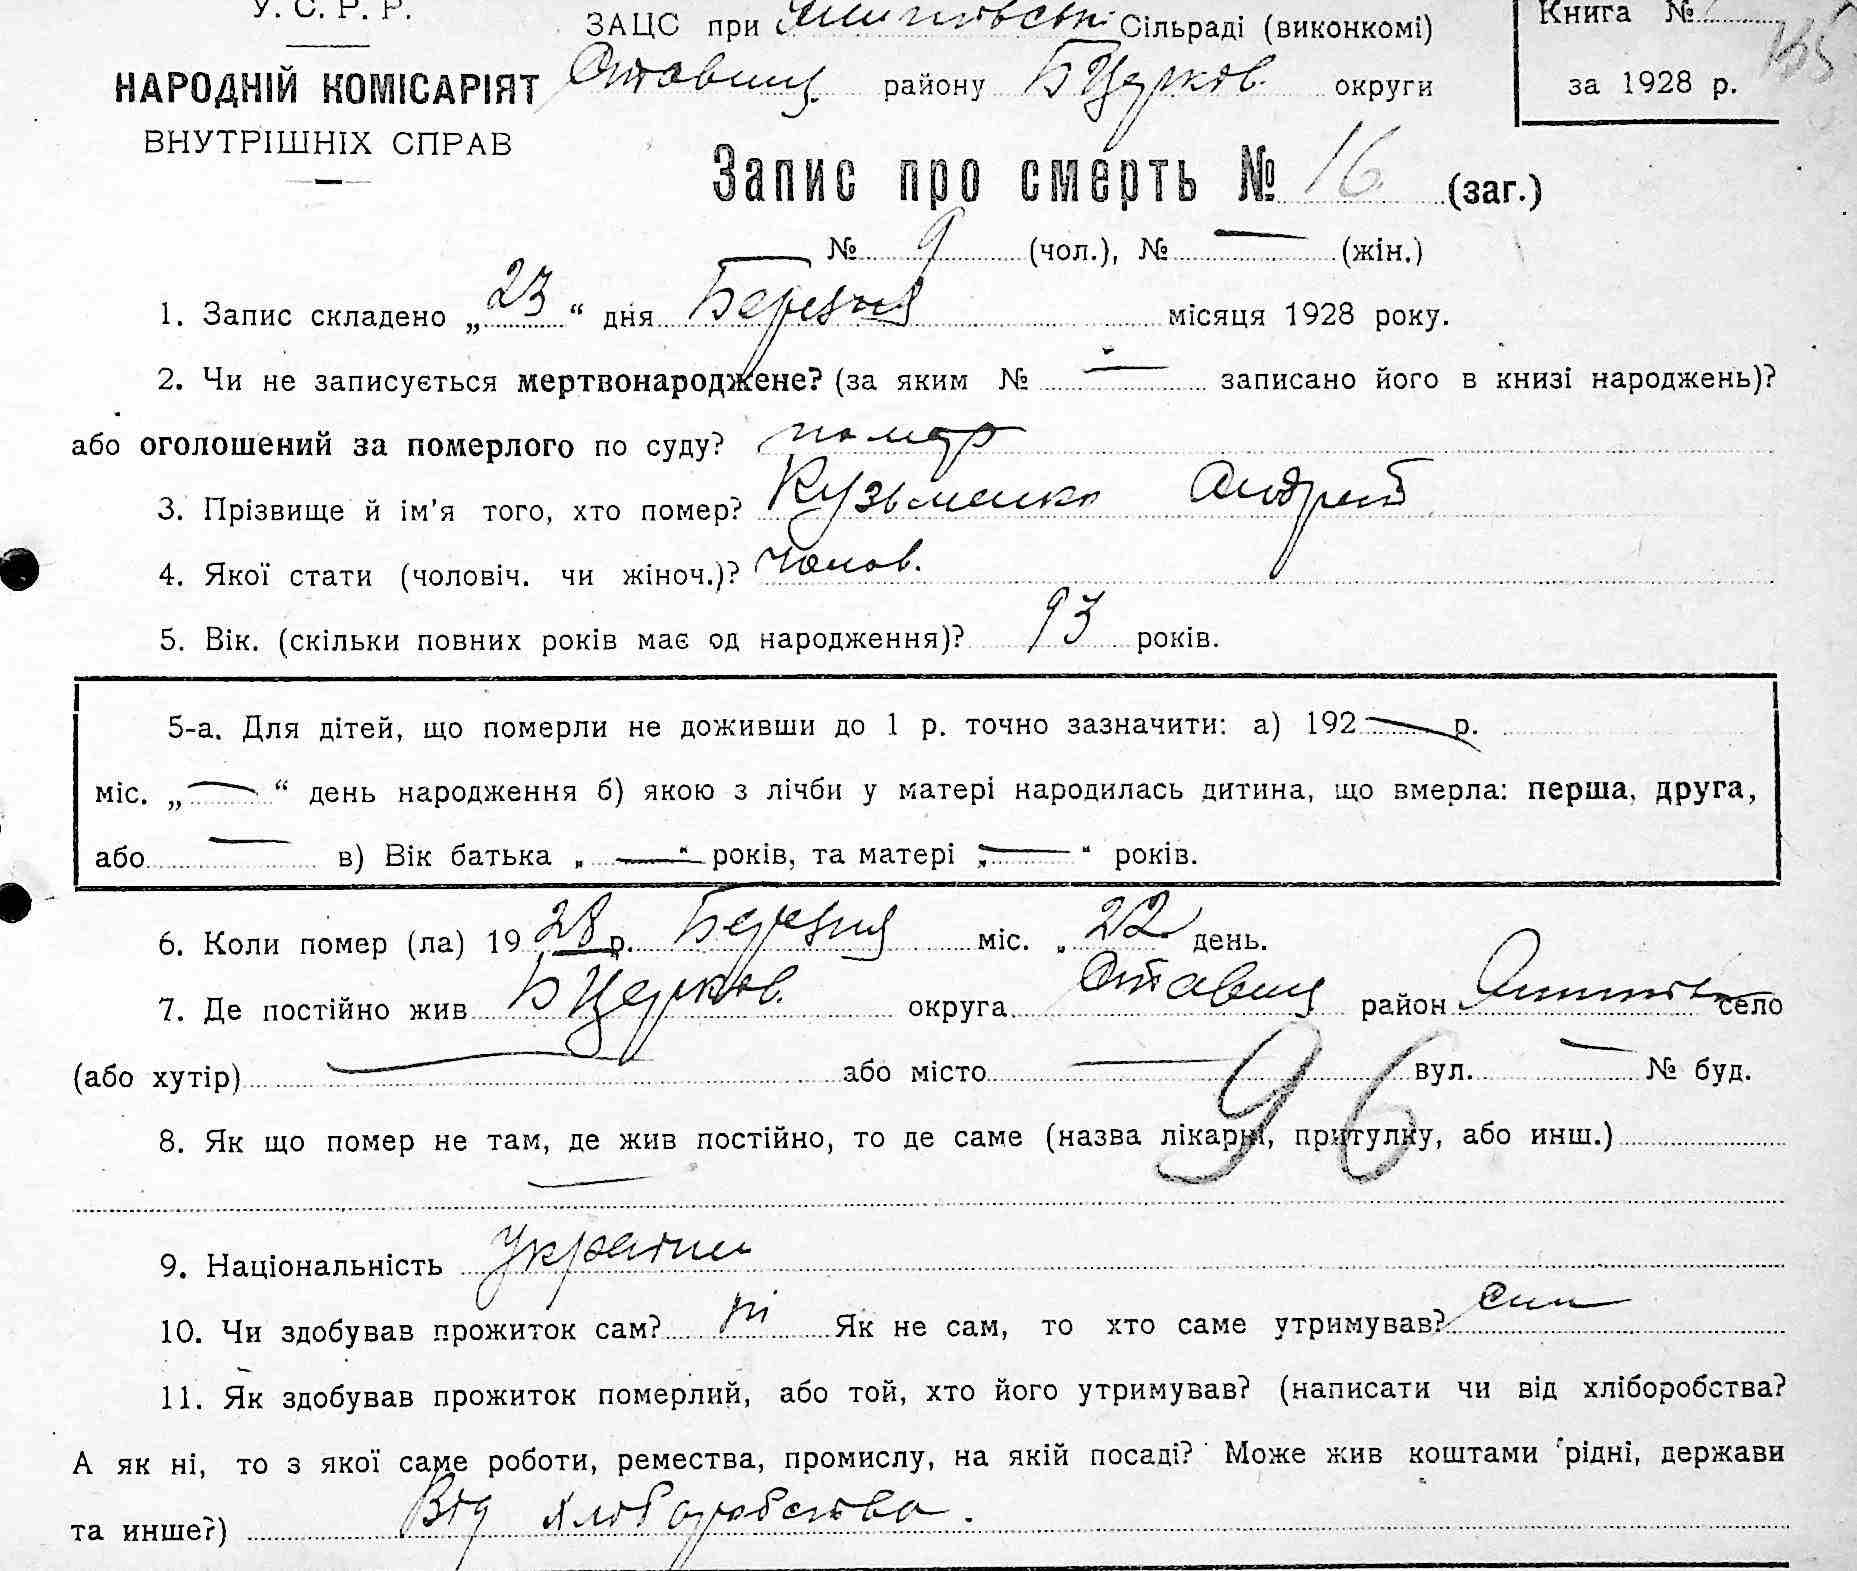 У. С. Р. Р.
ЗАЦС при Сільраді (виконкомі)
Книга №
НАРОДНІЙ КОМІСАРІЯТ
Ставищ. району БЦерков. округи
за 1928 р.
ВНУТРІШНІХ СПРАВ
Запис про смерть № 16 (заг.)
— № 9 (чол.), № — (жін.)
1. Запис складено „23“ дня Березня місяця 1928 року.
2. Чи не записується мертвонароджене? (за яким № — записано його в книзі народжень)?
або оголошений за померлого по суду? помер
3. Прізвище й ім'я того, хто помер? Кузьменко Андрей
4. Якої стати (чоловіч. чи жіноч.)? чолов.
5. Вік. (скільки повних років має од народження)? 93 років.
5-а. Для дітей, що померли не доживши до 1 р. точно зазначити: а) 192 — р.
міс. „—“ день народження б) якою з лічби у матері народилась дитина, що вмерла: перша, друга,
або — в) Вік батька „—“ років, та матері „—“ років.
6. Коли помер (ла) 1928 р. Березня міс. „22 день.
7. Де постійно жив БЦерков. округа Ставищ район село
(або хутір) — або місто — вул. — № буд.
96
8. Як що помер не там, де жив постійно, то де саме (назва лікарні, притулку, або инш.)
—
9. Національність Українц
10. Чи здобував прожиток сам? ні Як не сам, то хто саме утримував? син
11. Як здобував прожиток померлий, або той, хто його утримував? (написати чи від хліборобства?
А як ні, то з якої саме роботи, ремества, промислу, на якій посаді? Може жив коштами рідні, держави
та инше?) Від хліборобства.